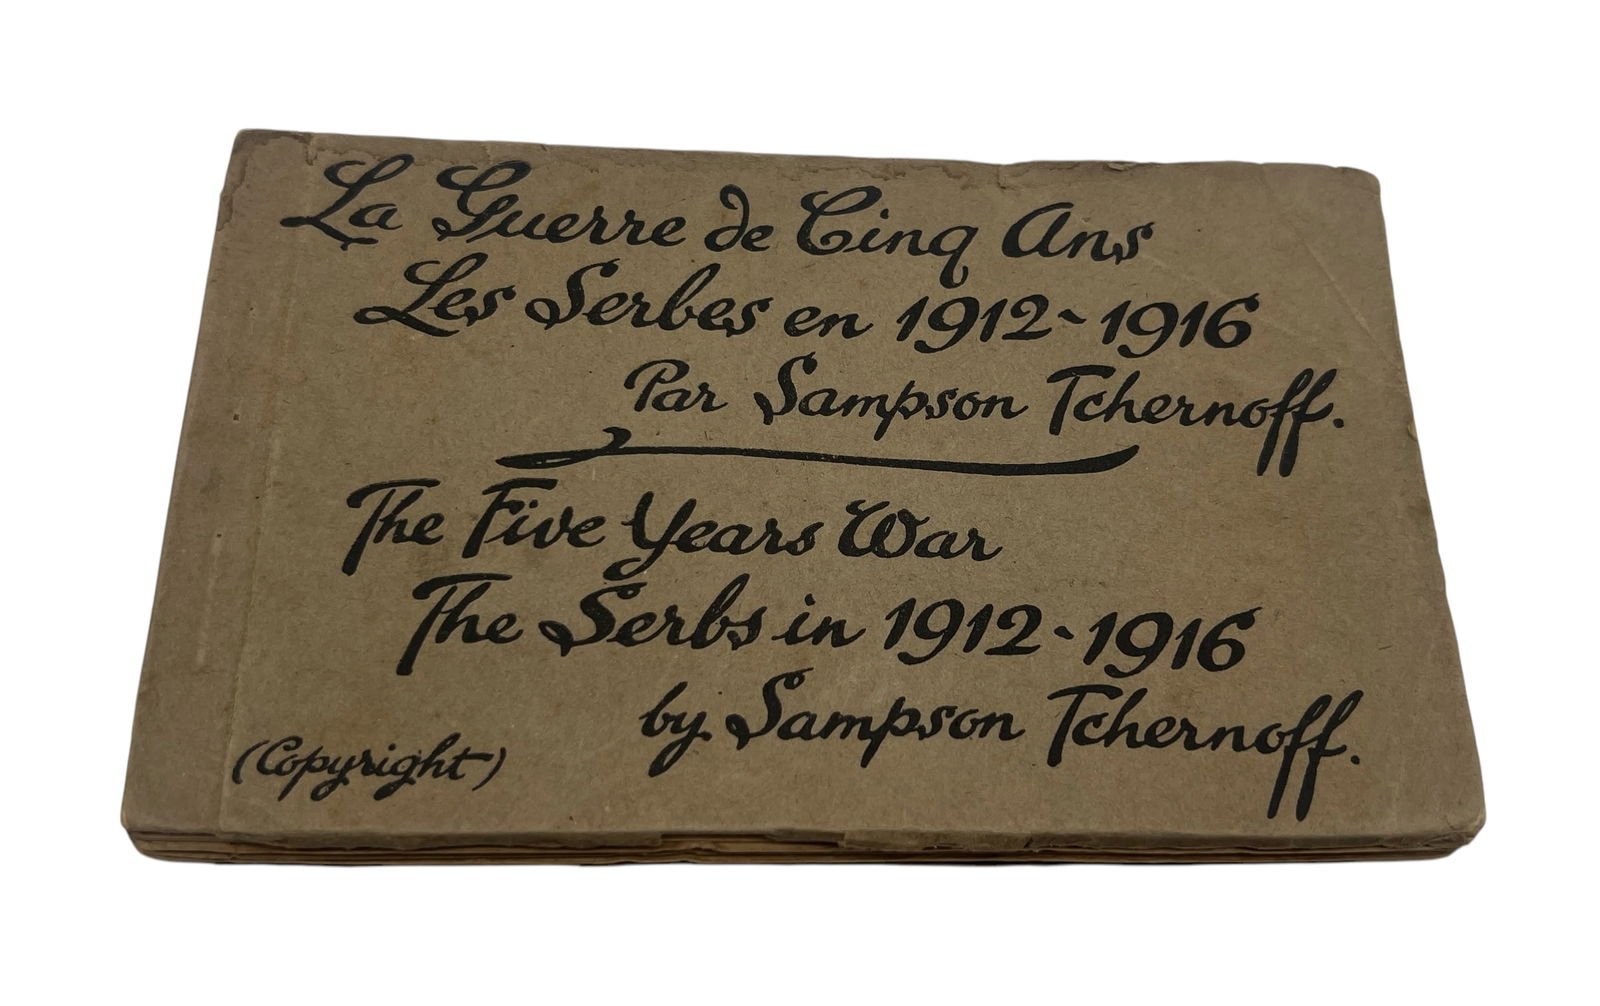 La Guerre de Cinq Ans
Les Serbes en 1912-1916
Par Sampson Tchernoff.
The Five Years War
The Serbs in 1912-1916
by Sampson Tchernoff.
(Copyright)